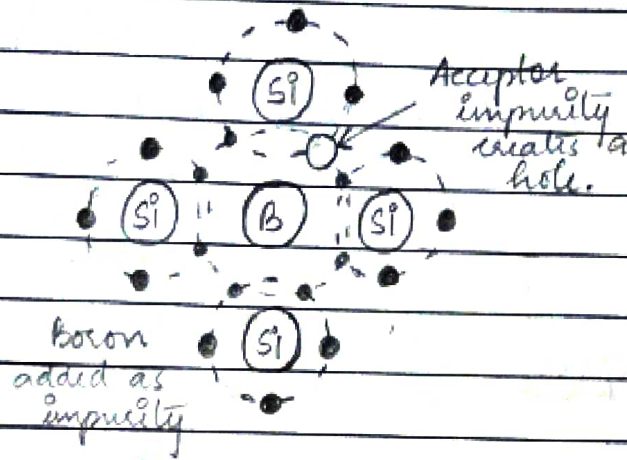 Si
Acceptor
impurity
creates a
hole.
Si
B
Si
Si
Boron
added as
impurity